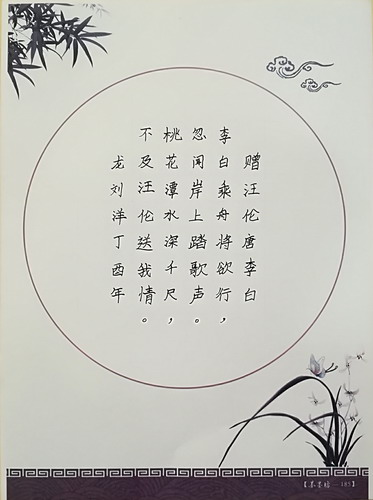 赠汪伦唐李白
李白乘舟将欲行，
忽闻岸上踏歌声。
桃花潭水深千尺，
不及汪伦送我情。
龙刘洋丁酉年